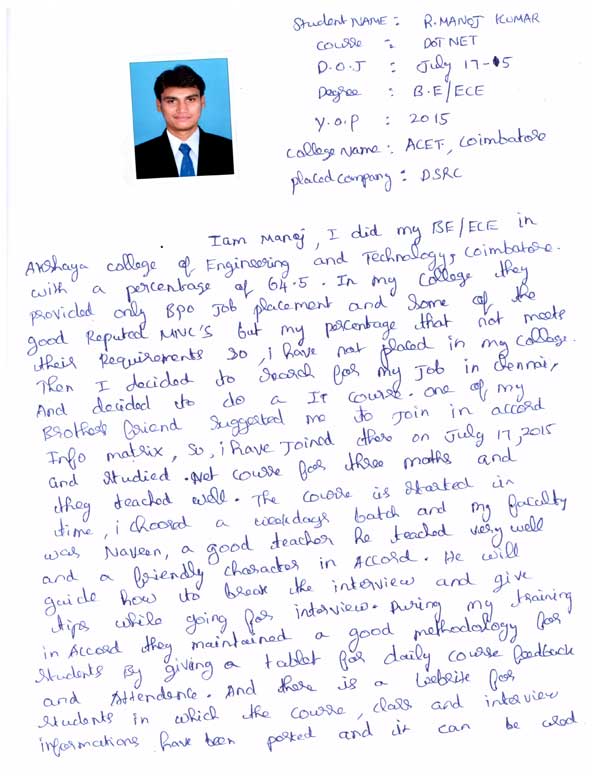 Student NAME : R.MANOJ KUMAR
Course : DOT NET
D.O.J : July 17-15
Degree : B.E/ECE
Y.O.P : 2015
College Name : ACET, Coimbatore
placed company : DSRC
Iam Manoj, I did my BE/ECE in
Akshaya college of Engineering and Technology, Coimbatore.
with a percentage of 64.5. In my College they
provided only BPO Job placement and Some of the
good Reputed MNC'S but my percentage that not meets
their Requirements so, i have not placed in my college.
Then I decided to search for my Job in chennai,
And decided to do a IT course. one of my
Brothers friend Suggested me to Join in accord
Info matrix, so, i have Joined there on July 17, 2015
and studied .Net course for three moths and
they teached well. The course is started in
time, i choosed a weekdays batch and my faculty
was Naveen, a good teacher he teached very well
and a friendly character in Accord. He will
guide how to break the interview and give
tips while going for interview. During my training
in Accord they maintained a good methodology for
Students By giving a tablet for daily course feedback
and Attendence. And there is a Website for
Students in which the course, class and interview
informations have been posted and it can be used